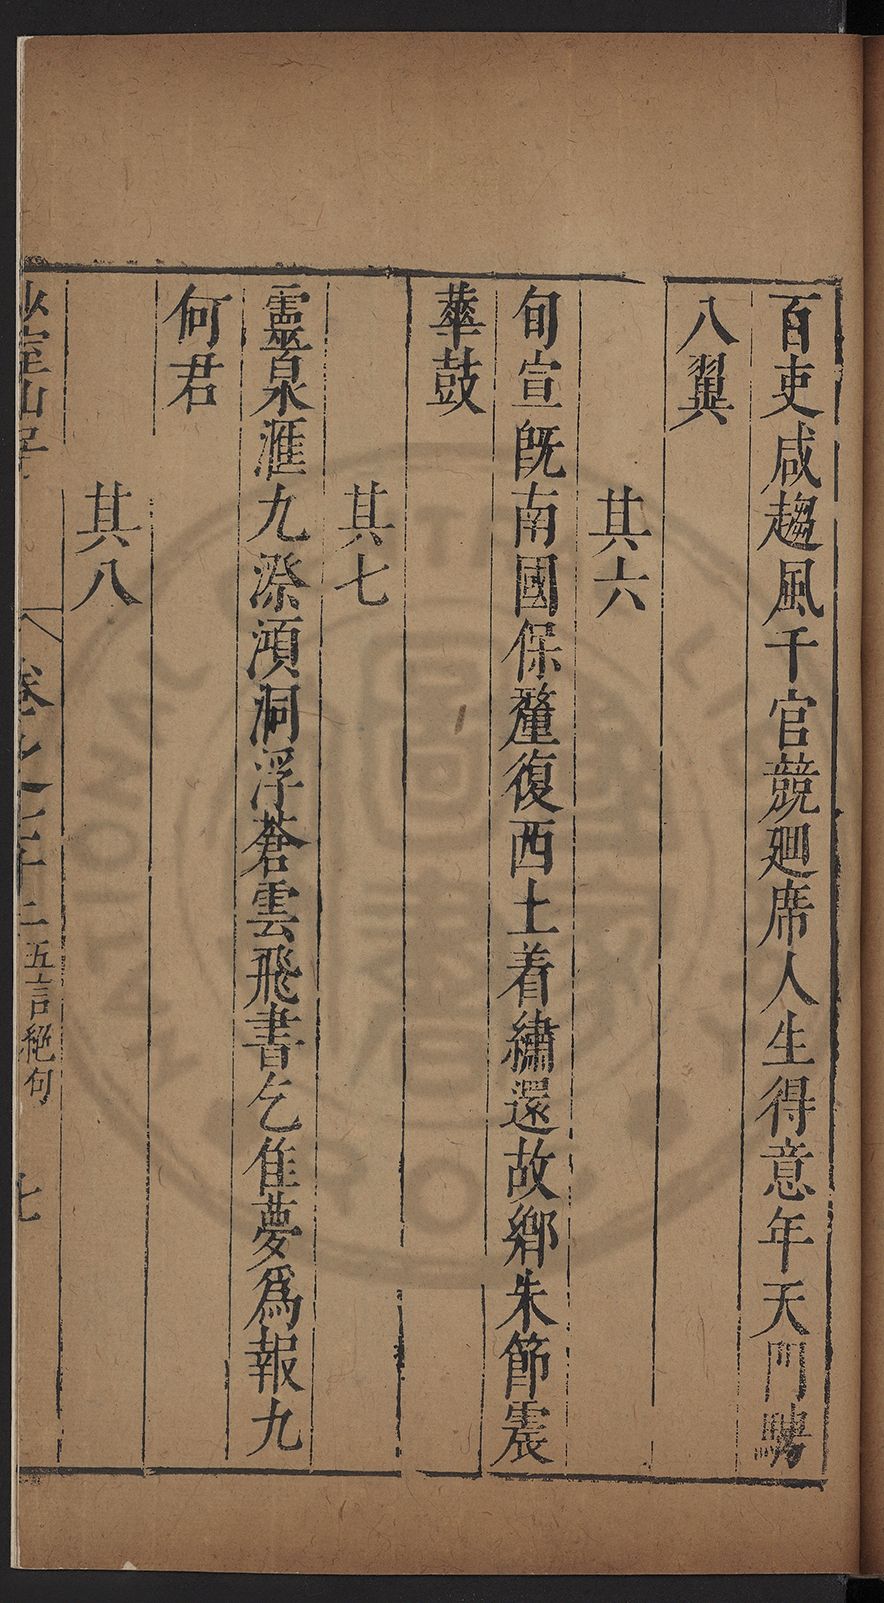 百吏咸趨風千官競廻席人生得意年天門騁
八翼
其六
旬宣旣南國保釐復西土着繡還故鄉朱節震
華鼓
其七
靈泉滙九漈澒洞浮蒼雲飛書乞隹夢爲報九
何君
其八
少室山房 卷之七十二 五言絶句 七